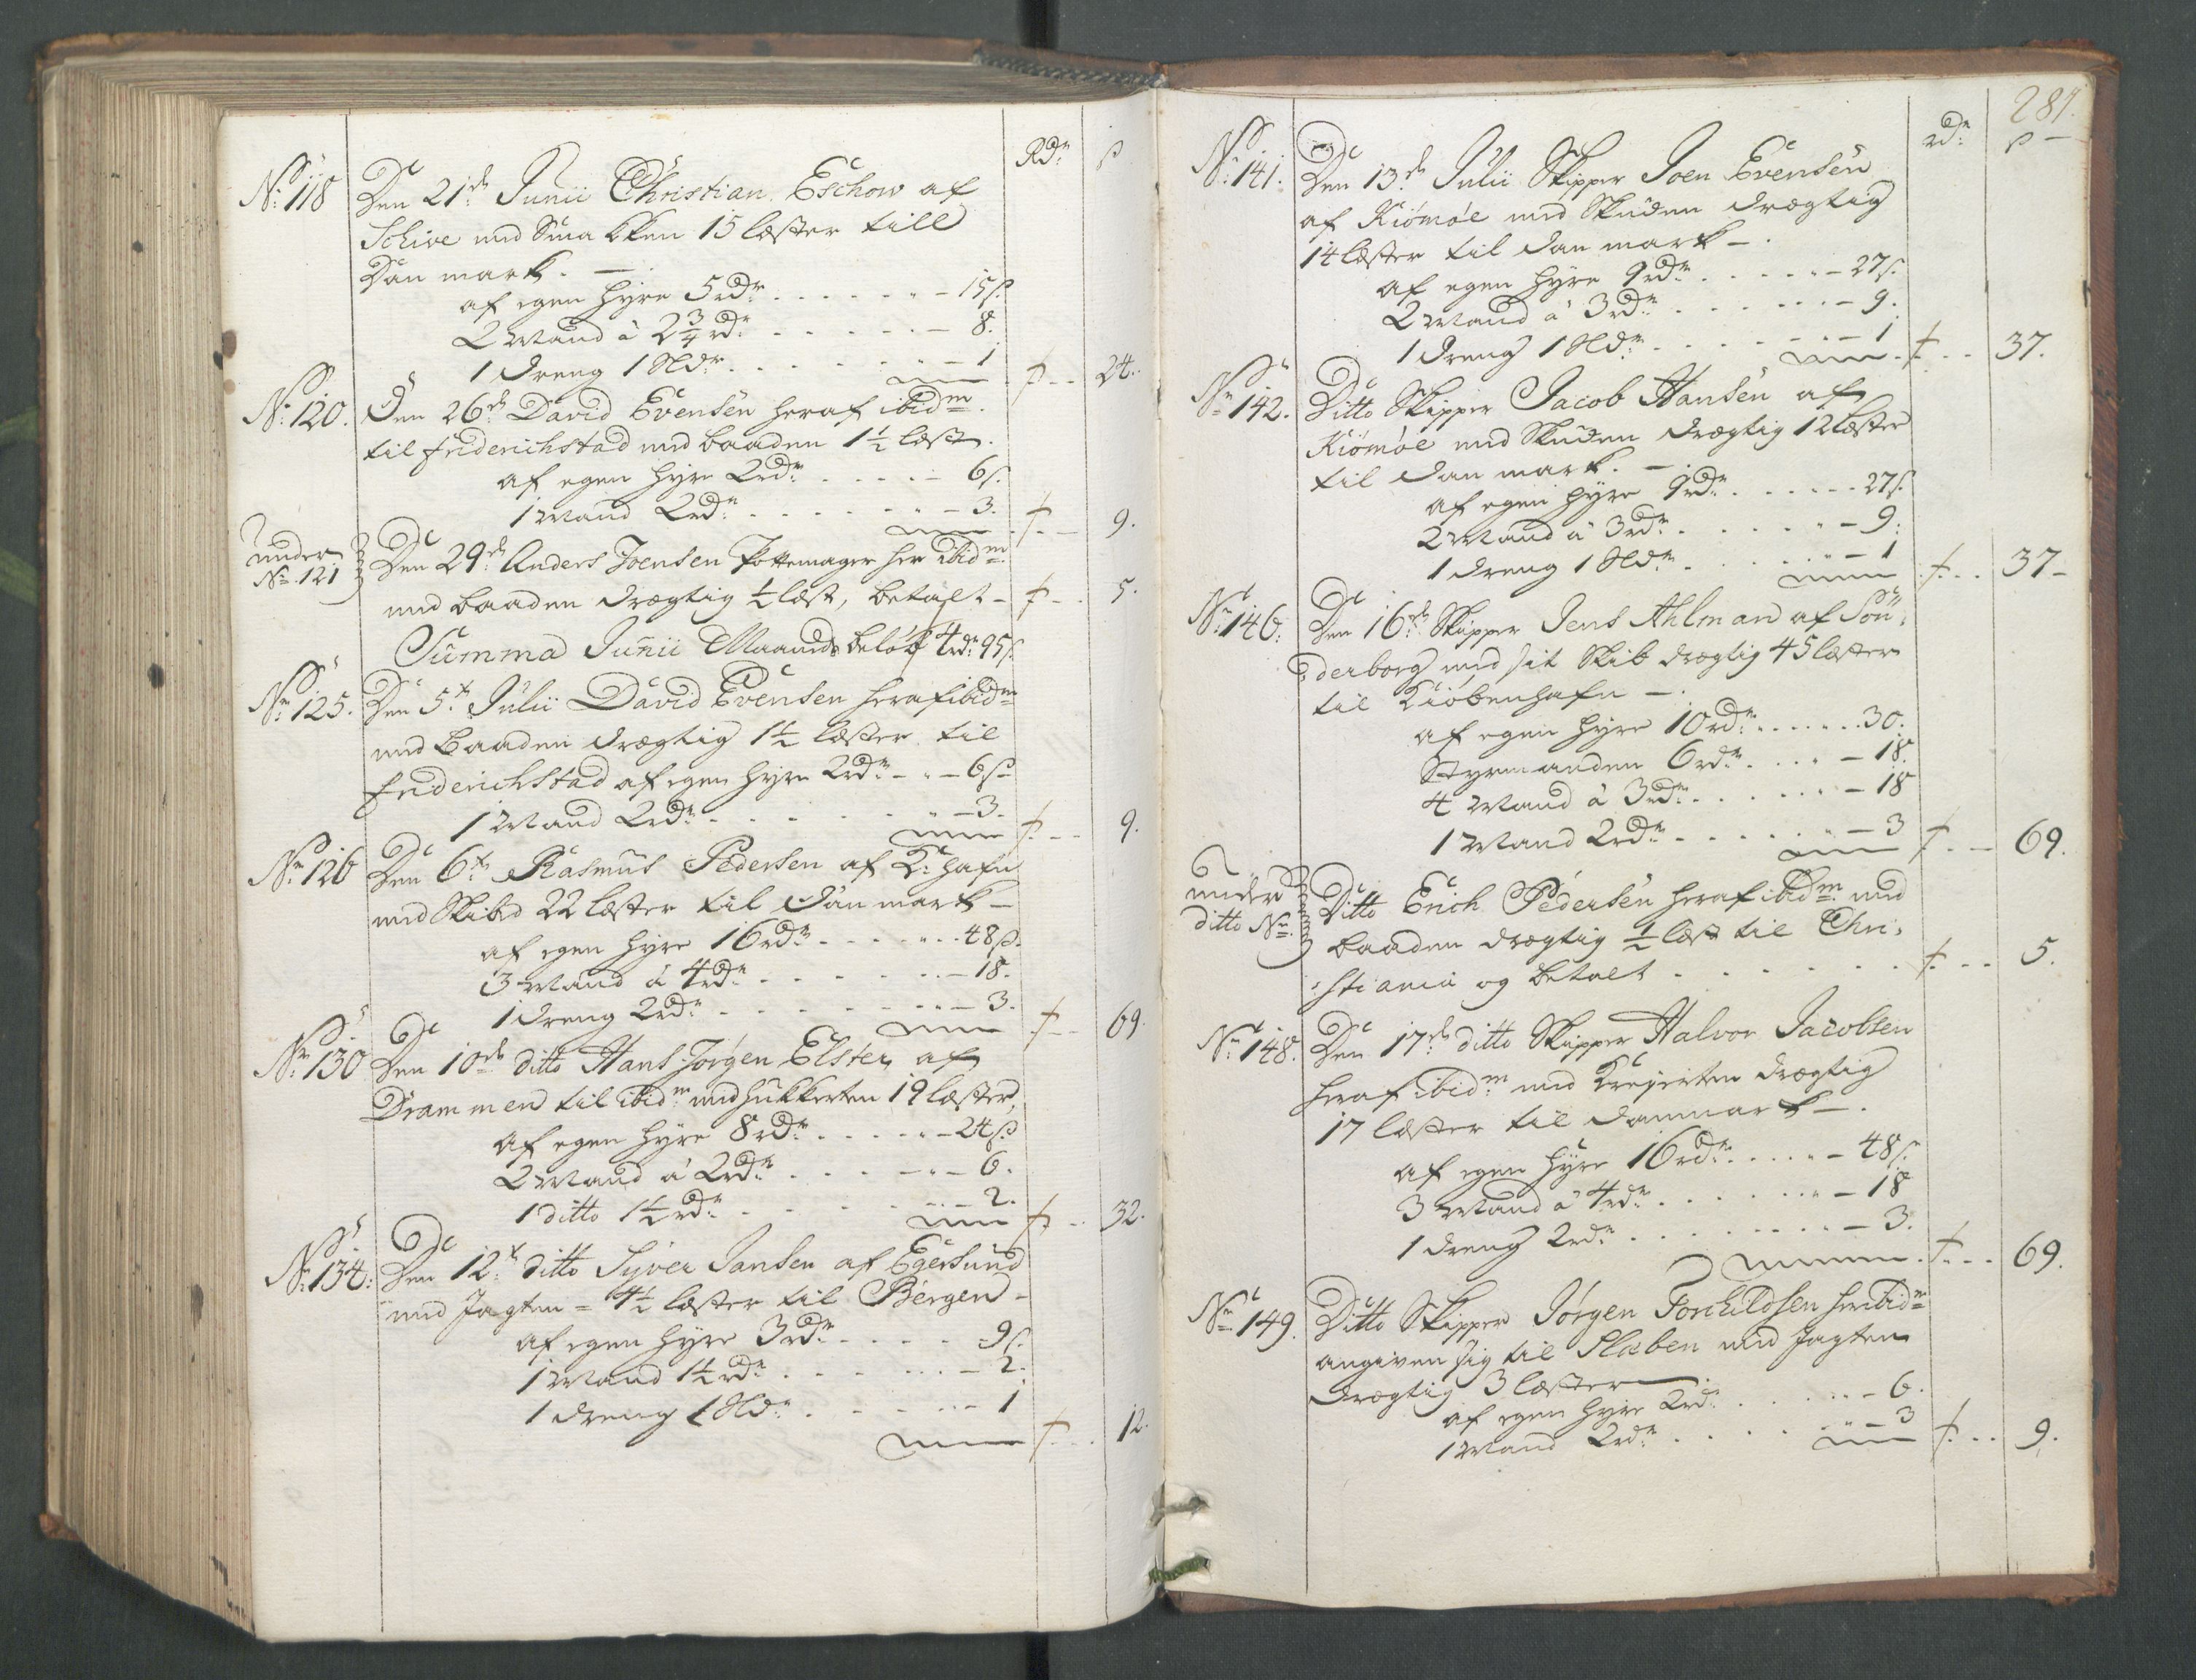 Rdr ß
No 118 Den 21de Junii Christian Eschow af
Schive med Smakken 15 læster till
Danmark. —
af egen hyre 5 rdr . . . . — 15 ß.
2 Mand á 2¾ rdr . . . . — 8.
1 dreng 1 Sldr . . . . — 1 24.
No 120. Den 26de David Evensen heraf ibidm.
til friderichstad med baaden 1½ læst.
af egen hyre 2 rdr . . . . — 6 ß.
1 Mand 2 rdr . . . . — 3. 9.
under No 121 Den 29de Anders Joensen Pottemager her ibidm
med baaden drægtig ½ læst, betalt — 5.
Summa Junii Maaneds beløb 4 rdr 95 ß.
No 125. Den 5te Julii David Evensen heraf ibidm
med baaden drægtig 1½ læster til
friderichstad af egen hyre 2 rdr — 6 ß
1 Mand 2 rdr . . . . — 3. 9.
No 126 Den 6te Rasmus Pedersen af K: hafn
med Skibed 22 læster til Danmark —
af egen hyre 16 rdr . . . . 48 ß.
3 Mand á 4 rdr . . . . — 18.
1 dreng 2 rdr . . . . — 3. 69.
No 130 Den 10de ditto Hans Jørgen Elster af
Drammen til ibidm med hukkerten 19 læster,
af egen hyre 8 rdr . . . . — 24 ß
2 Mand á 2 rdr . . . . — 6.
1 ditto 1½ rdr . . . . — 2. 32.
No 134: Den 12te ditto Syver Jansen af Egersund
med Jagten = 4½ læster til Bergen —
af egen hyre 3 rdr . . . . 9 ß.
1 Mand 1½ rdr . . . . — 2.
1 dreng 1 Sldr . . . . — 1 12.
281.
rdr ß
No 141. Den 13de Julii Skipper Joen Evensen
af Kiömöe med Skuden drægtig
14 læster til danmark —.
af egen hyre 9 rdr . . . . — 27 ß.
2 Mand á 3 rdr . . . . — 9.
1 dreng 1 Sldr . . . . — 1 37.
No 142. Ditto Skipper Jacob Hansen af
Kiömöe med Skuden drægtig 12 læster
til danmark. —.
af egen hyre 9 rdr . . . . 27 ß
2 Mand á 3 rdr . . . . — 9.
1 dreng 1 Sldr . . . . — 1 37 —
No 146: Den 16de Skipper Jens Ahlman af Sön:
:derborg med sit Skib drægtig 45 læster
til Kiöbenhafn —.
af egen hyre 10 rdr . . . . 30.
Styrmanden 6 rdr . . . . — 18.
4 Mand á 3 rdr . . . . — 18
1 Mand 2 rdr . . . . — 3 69.
under ditto No Ditto Erich Pedersen heraf ibidm med
baaden drægtig ½ læst til Chri:
:stiania og betalt . . . . 5.
No 148. Den 17de ditto Skipper Halvor Jacobsen
heraf ibidm med Krejerten drægtig
17 læster til danmark —.
af egen hyre 16 rdr . . . . — 48 ß.
3 Mand á 4 rdr . . . . — 18
1 dreng 2 rdr . . . . — 3. 69.
No 149. Ditto Skipper Jörgen Torchildsen her ibidm
angiven sig til Slæben med Jagten
drægtig 3 læster
af egen hyre 2 rdr . . . . — 6.
1 Mand 2 rdr . . . . — 3 9.